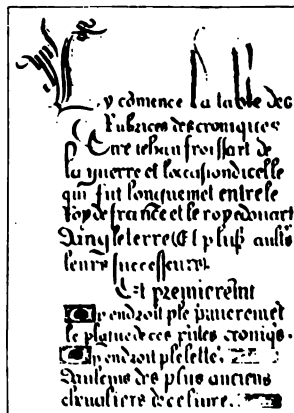 Cy cōmence la table des
Rubrices des croniques
Sire iehan froissart de
la guerre et loccasion dicelle
qui fut longuemet entre le
roy de france et le roy edouart
dangleterre Et plus
leurs successeurs
Et premieremt
Cy endroit ple
le de ces croniqs.
Cy endroit
des plus anciens
chevaliers de ce livre.